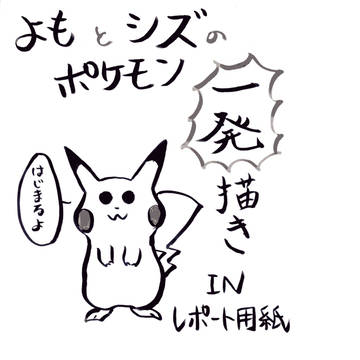 よもとシズの
ポケモン
一発
描き
IN
レポート用紙
はじまるよ